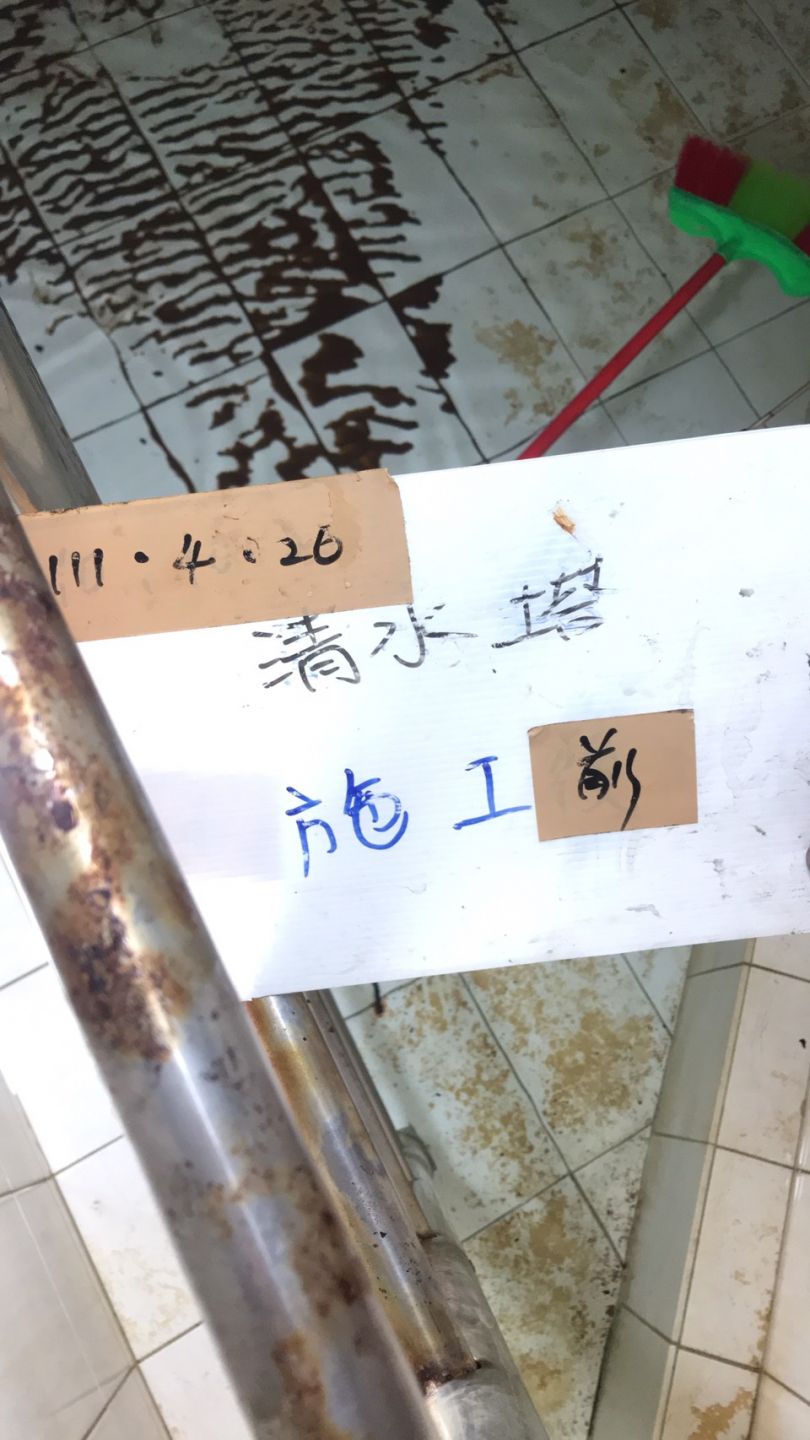 111.4.26
清水塔
施工前